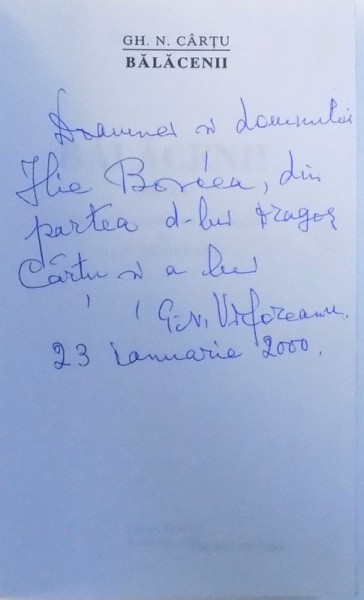 GH. N. CÂRȚU
BĂLĂCENII
Doamnei și domnului
Ilie Borcea, din
partea d-lui Dragoș
Cârțu și a lui
G.N. Vîforeanu.
23 ianuarie 2000.